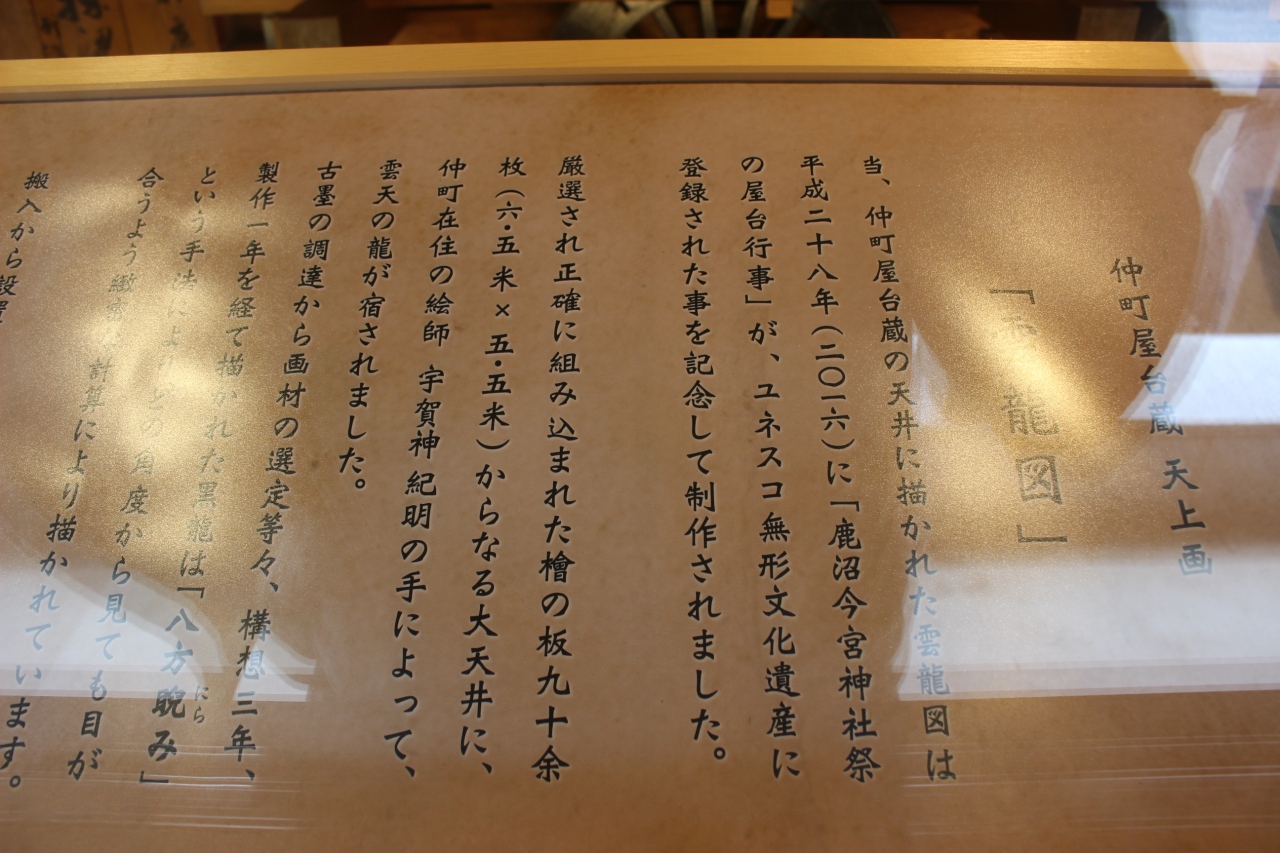 仲町屋台蔵 天上画
「雲龍図」
当、仲町屋台蔵の天井に描かれた雲龍図は
平成二十八年(二〇一六)に「鹿沼今宮神社祭
の屋台行事」が、ユネスコ無形文化遺産に
登録された事を記念して制作されました。
厳選され正確に組み込まれた檜の板九十余
枚(六・五米×五・五米)からなる大天井に、
仲町在住の絵師 宇賀神 紀明の手によって、
雲天の龍が宿されました。
古墨の調達から画材の選定等々、構想三年、
製作一年を経て描かれた黒龍は「八方睨み」
にら
という手法によりどの角度から見ても目が
合うよう緻密な計算により描かれています。
搬入から設置